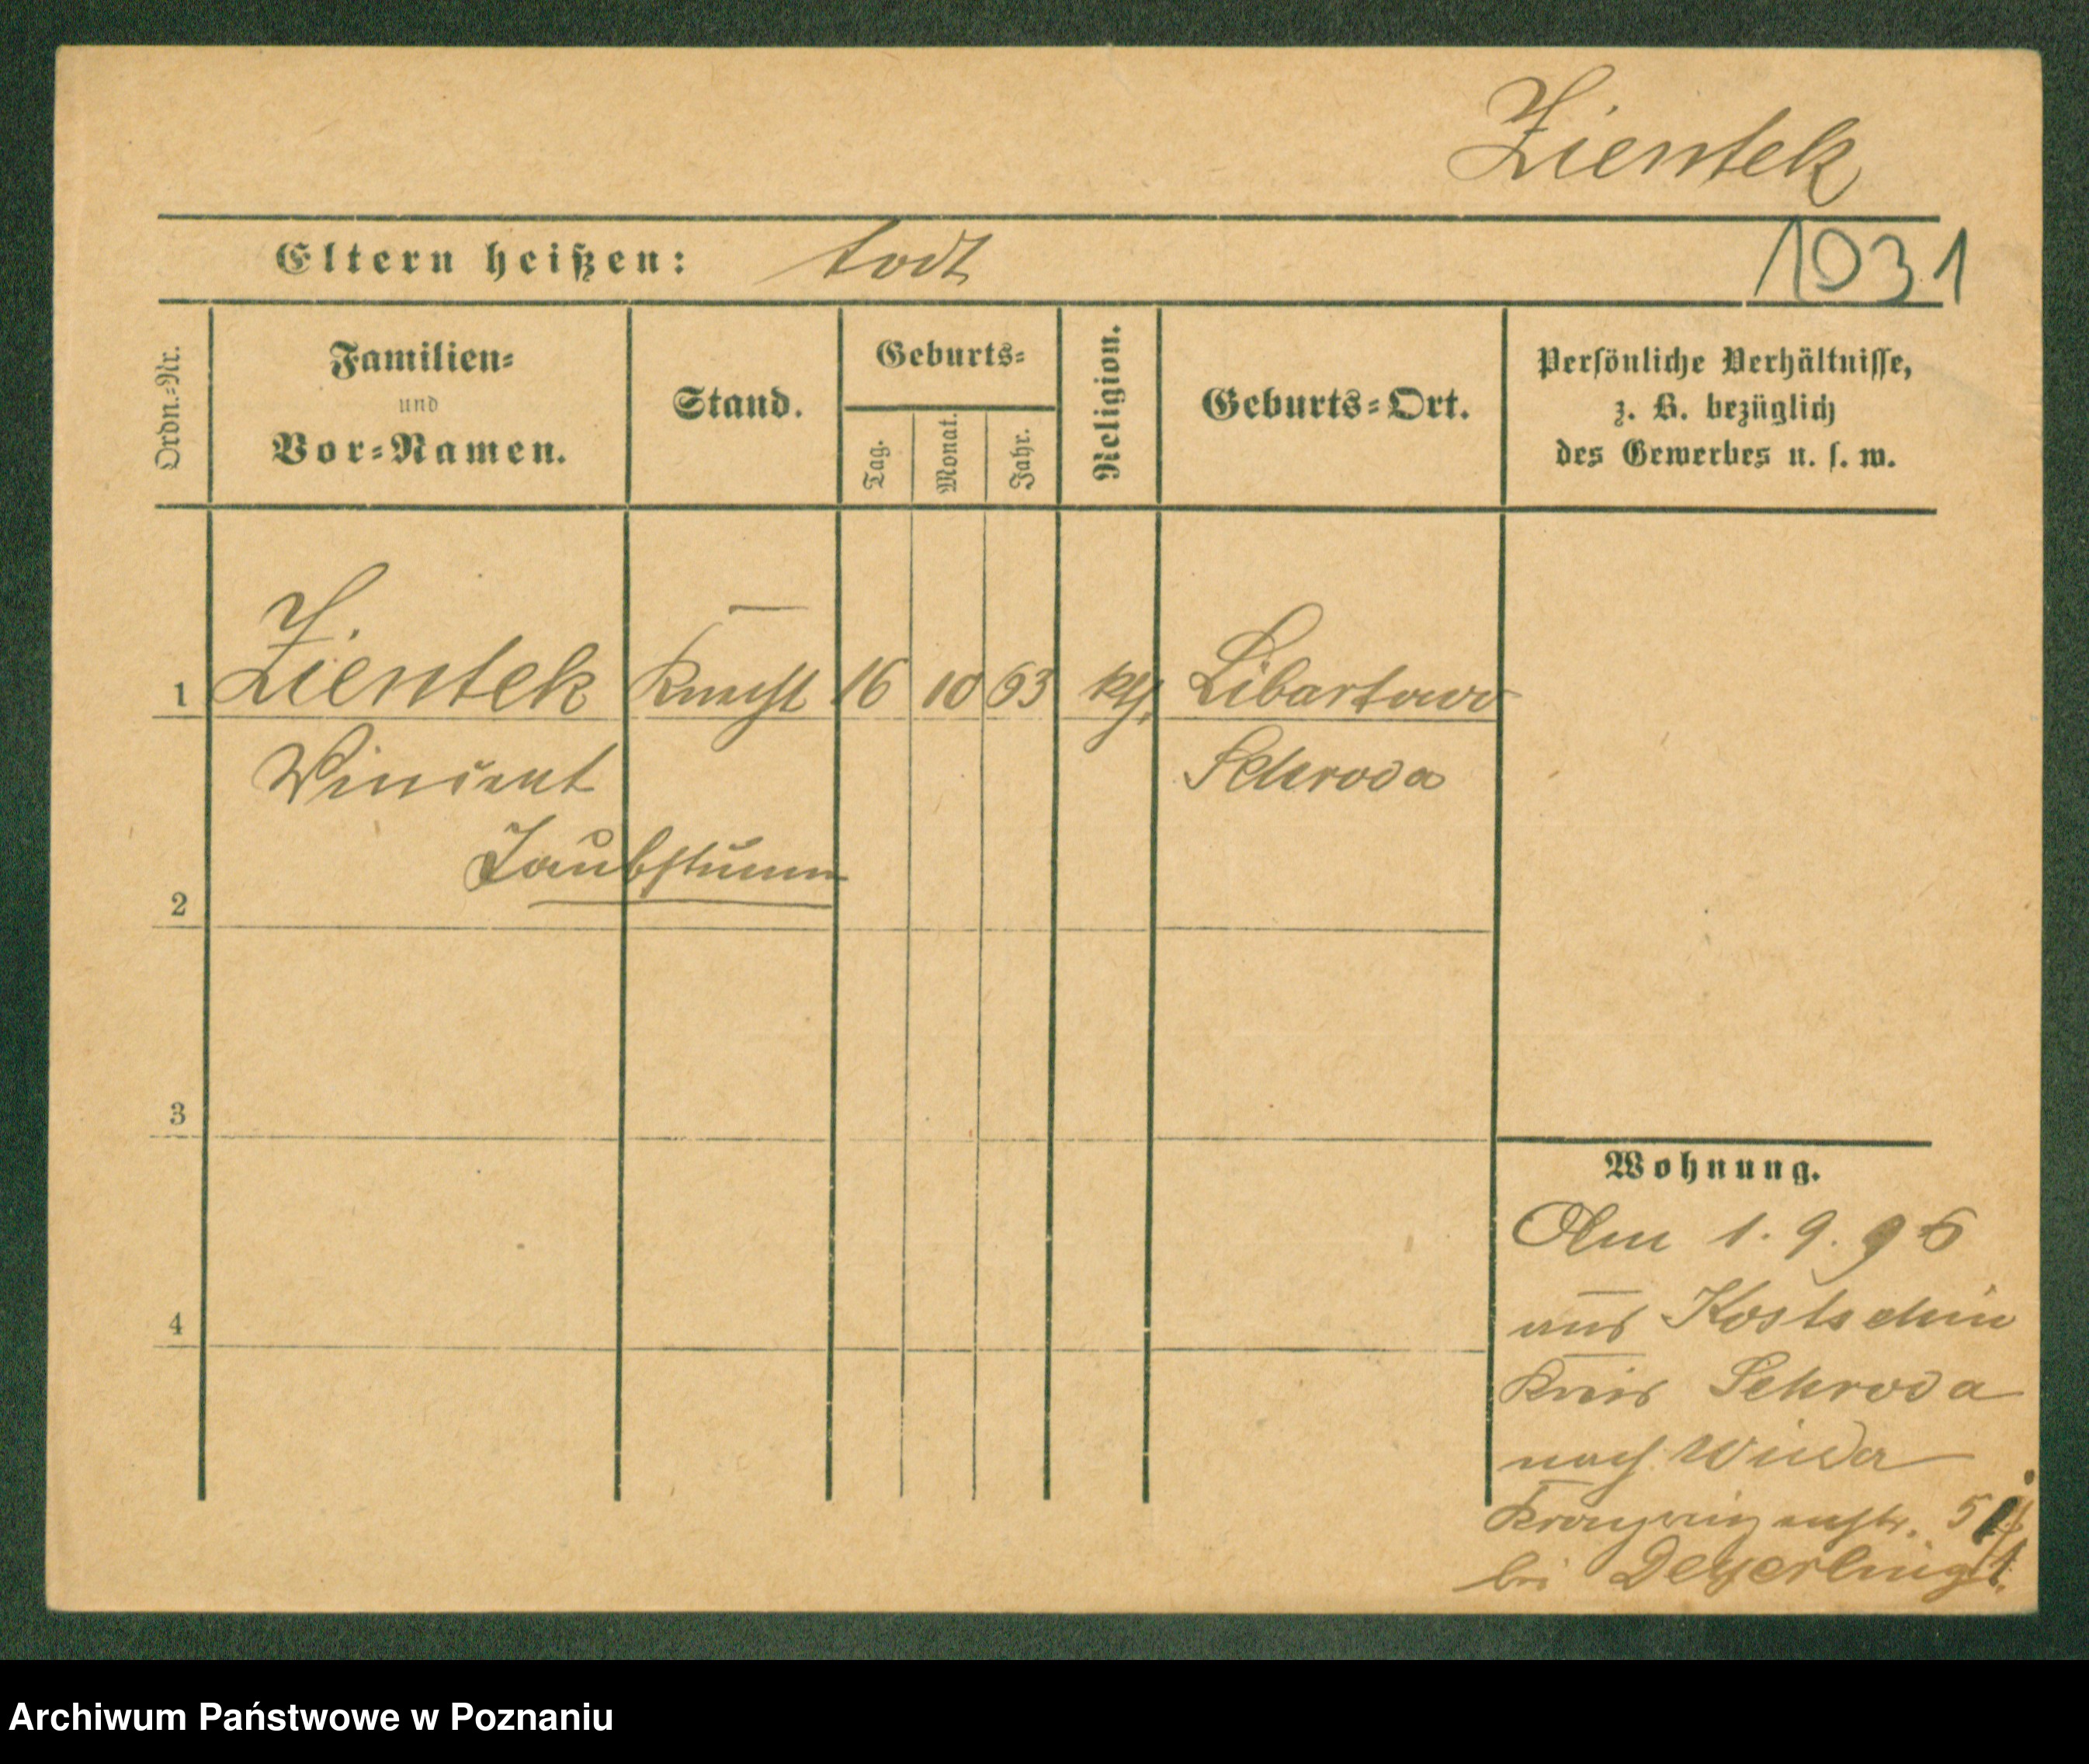 Zientek
Eltern heißen: todt
1031
Ordn.-Nr.
Familien-
und
Vor-Namen.
Stand.
Geburts-
Tag.
Monat.
Jahr.
Religion.
Geburts-Ort.
Persönliche Verhältnisse,
z. B. bezüglich
des Gewerbes u. s. w.
1 Zientek Knecht 16 10 63 kth. Libartowo
Vincent Schroda
Taubstumm
2
3
4
Wohnung.
Am 1. 9. 96
aus Kostschin
Kreis Schroda
nach Wilda
51
bei Deyerling
Archiwum Państwowe w Poznaniu